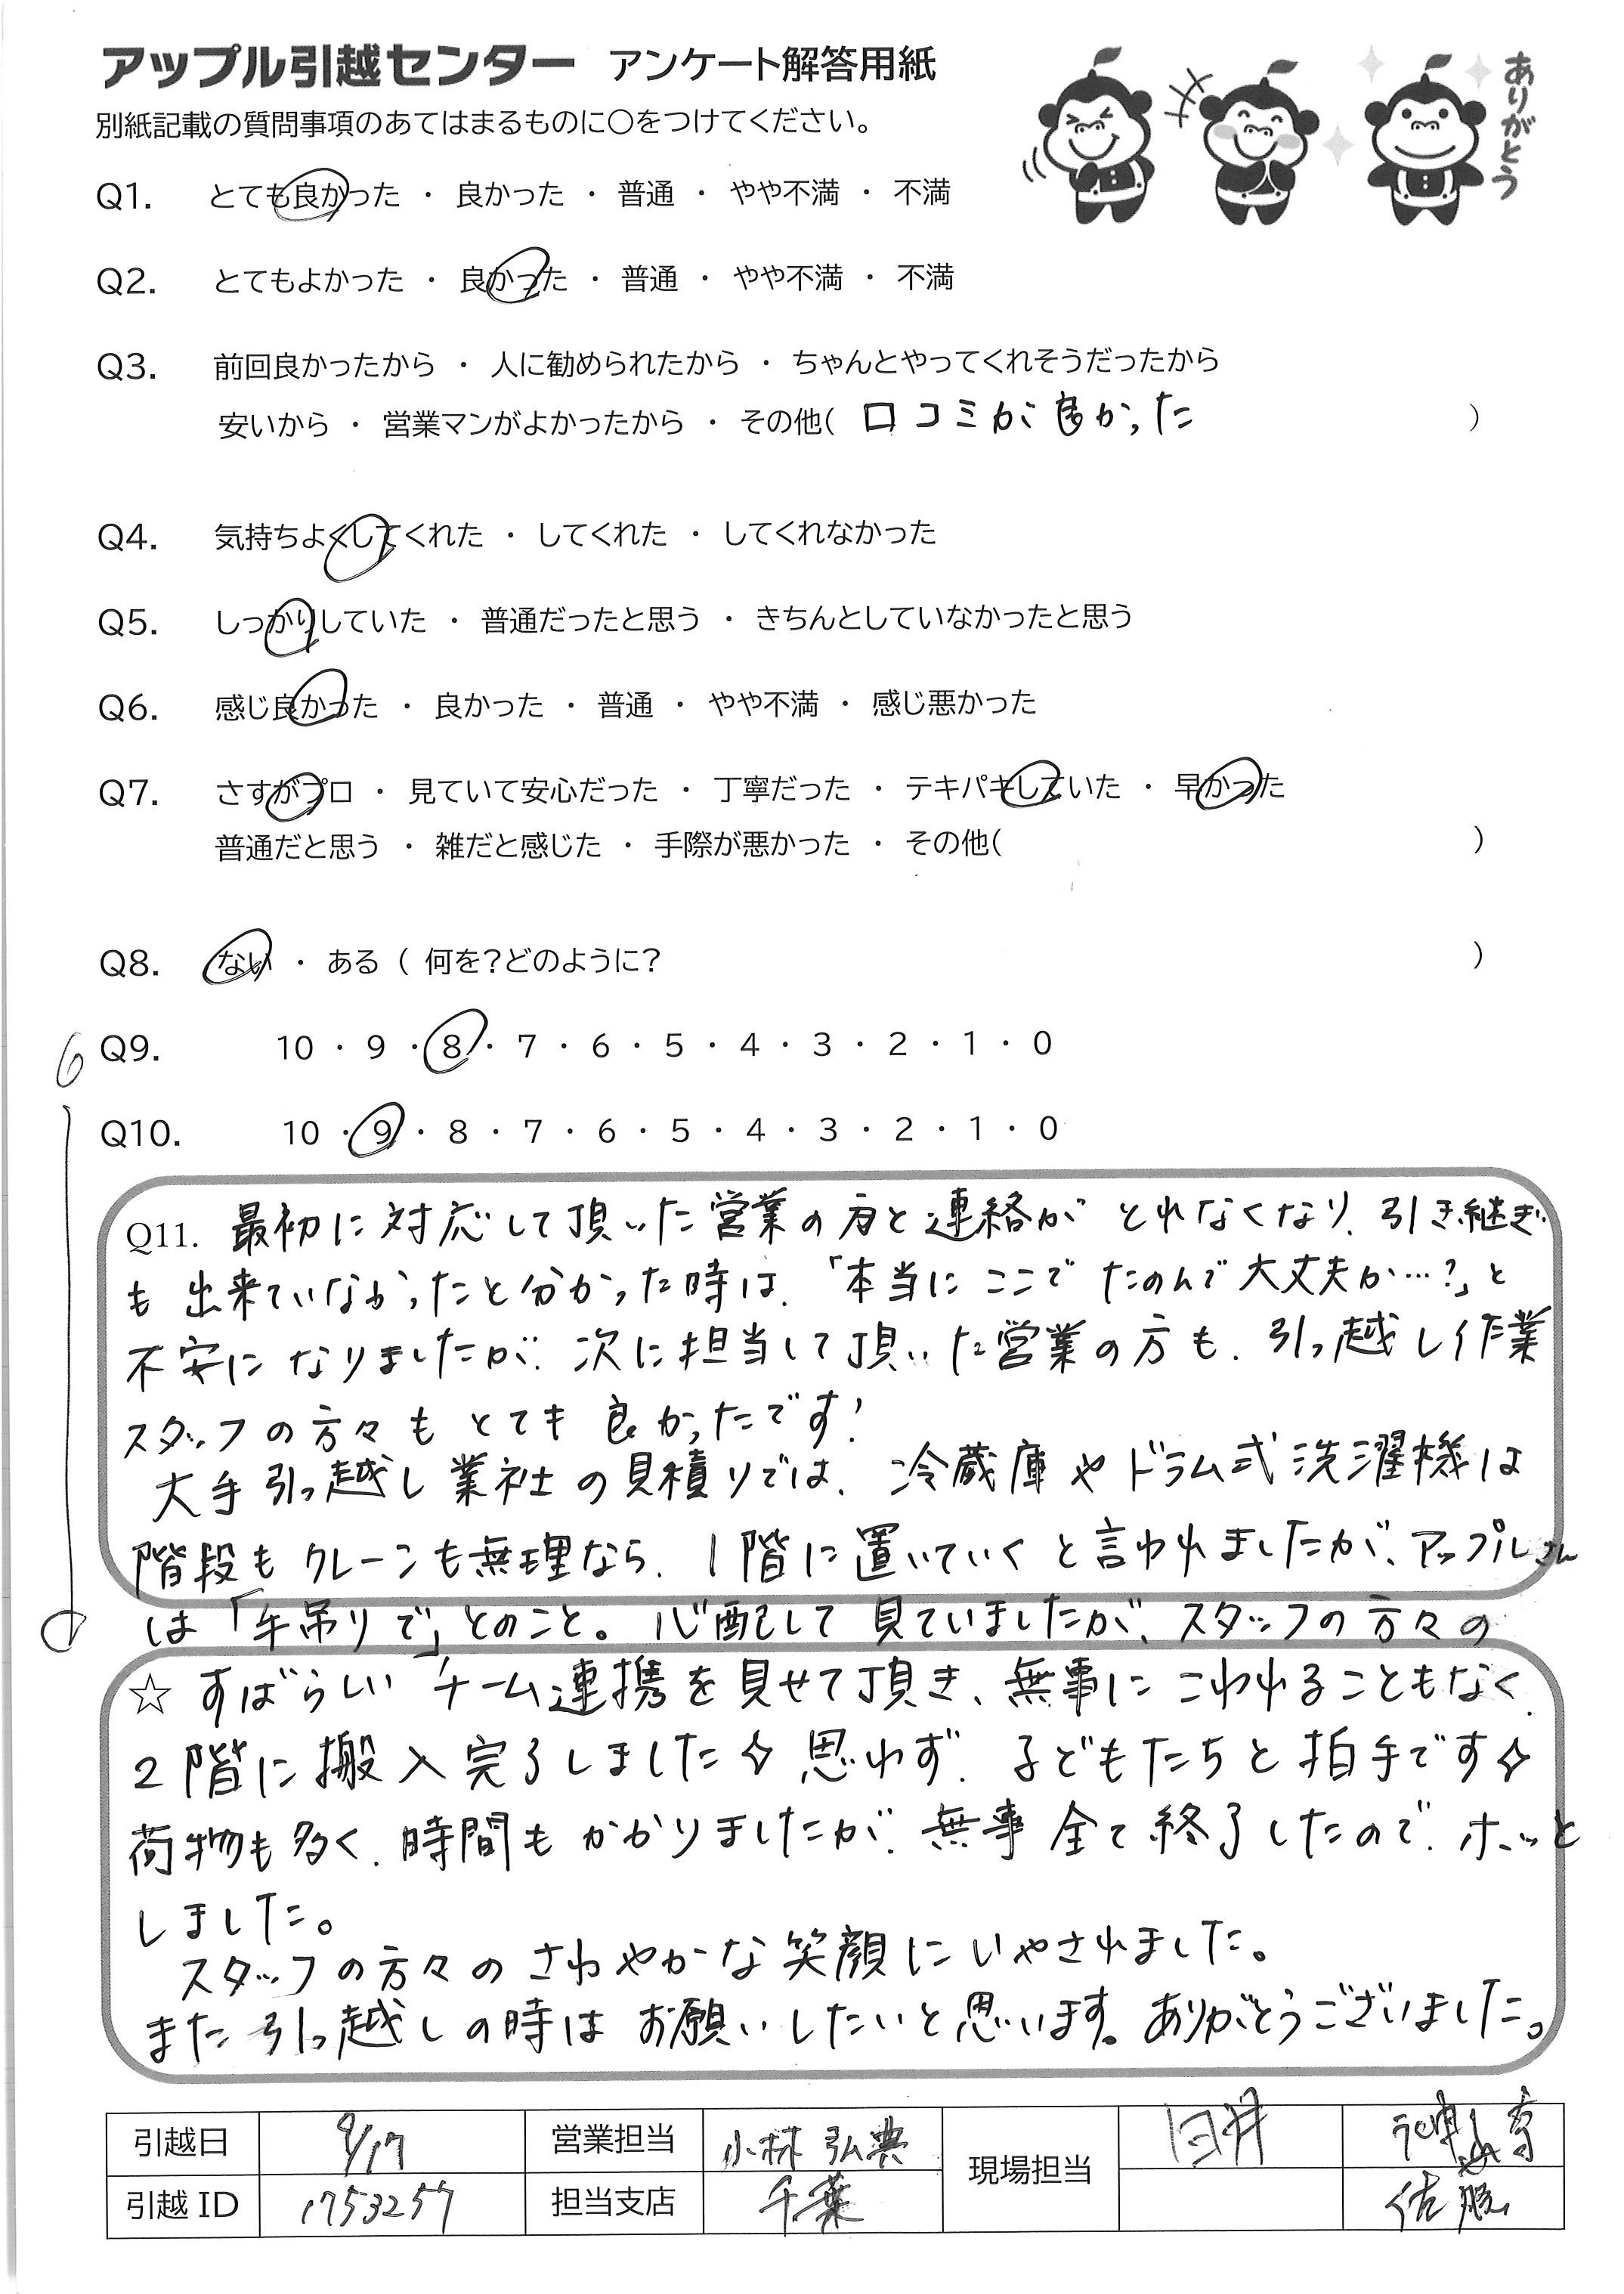 アップル引越センター アンケート解答用紙
ありがとう
別紙記載の質問事項のあてはまるものに○をつけてください。
Q1. とても良かった ・ 良かった ・ 普通 ・ やや不満 ・ 不満
Q2. とてもよかった ・ 良かった ・ 普通 ・ やや不満 ・ 不満
Q3. 前回良かったから ・ 人に勧められたから ・ ちゃんとやってくれそうだったから
安いから ・ 営業マンがよかったから ・ その他( 口コミが良かった )
Q4. 気持ちよくしてくれた ・ してくれた ・ してくれなかった
Q5. しっかりしていた ・ 普通だったと思う ・ きちんとしていなかったと思う
Q6. 感じ良かった ・ 良かった ・ 普通 ・ やや不満 ・ 感じ悪かった
Q7. さすがプロ ・ 見ていて安心だった ・ 丁寧だった ・ テキパキしていた ・ 早かった
普通だと思う ・ 雑だと感じた ・ 手際が悪かった ・ その他( )
Q8. ない ・ ある ( 何を?どのように? )
6 Q9. 10 ・ 9 ・ 8 ・ 7 ・ 6 ・ 5 ・ 4 ・ 3 ・ 2 ・ 1 ・ 0
Q10. 10 ・ 9 ・ 8 ・ 7 ・ 6 ・ 5 ・ 4 ・ 3 ・ 2 ・ 1 ・ 0
Q11. 最初に対応して頂いた営業の方と連絡がとれなくなり、引き継ぎ
も出来ていなかったと分かった時は、「本当にここでたのんで大丈夫か…?」と
不安になりましたが、次に担当して頂いた営業の方も、引っ越し作業
スタッフの方々もとても良かったです!
大手引っ越し業社の見積りでは、冷蔵庫やドラム式洗濯機は
階段もクレーンも無理なら、1階に置いていくと言われましたが、アップルさん
は「手吊りで」とのこと。心配して見ていましたが、スタッフの方々の
☆ すばらしいチーム連携を見せて頂き、無事にこわれることもなく、
2階に搬入完了しました☆ 思わず、子どもたちと拍手です☆
荷物も多く、時間もかかりましたが、無事全て終了したので、ホッと
しました。
スタッフの方々のさわやかな笑顔にいやされました。
また引っ越しの時はお願いしたいと思います。ありがとうございました。
引越日 9/17 営業担当 小林 弘典 現場担当 臼井
引越ID 1753257 担当支店 千葉 佐藤